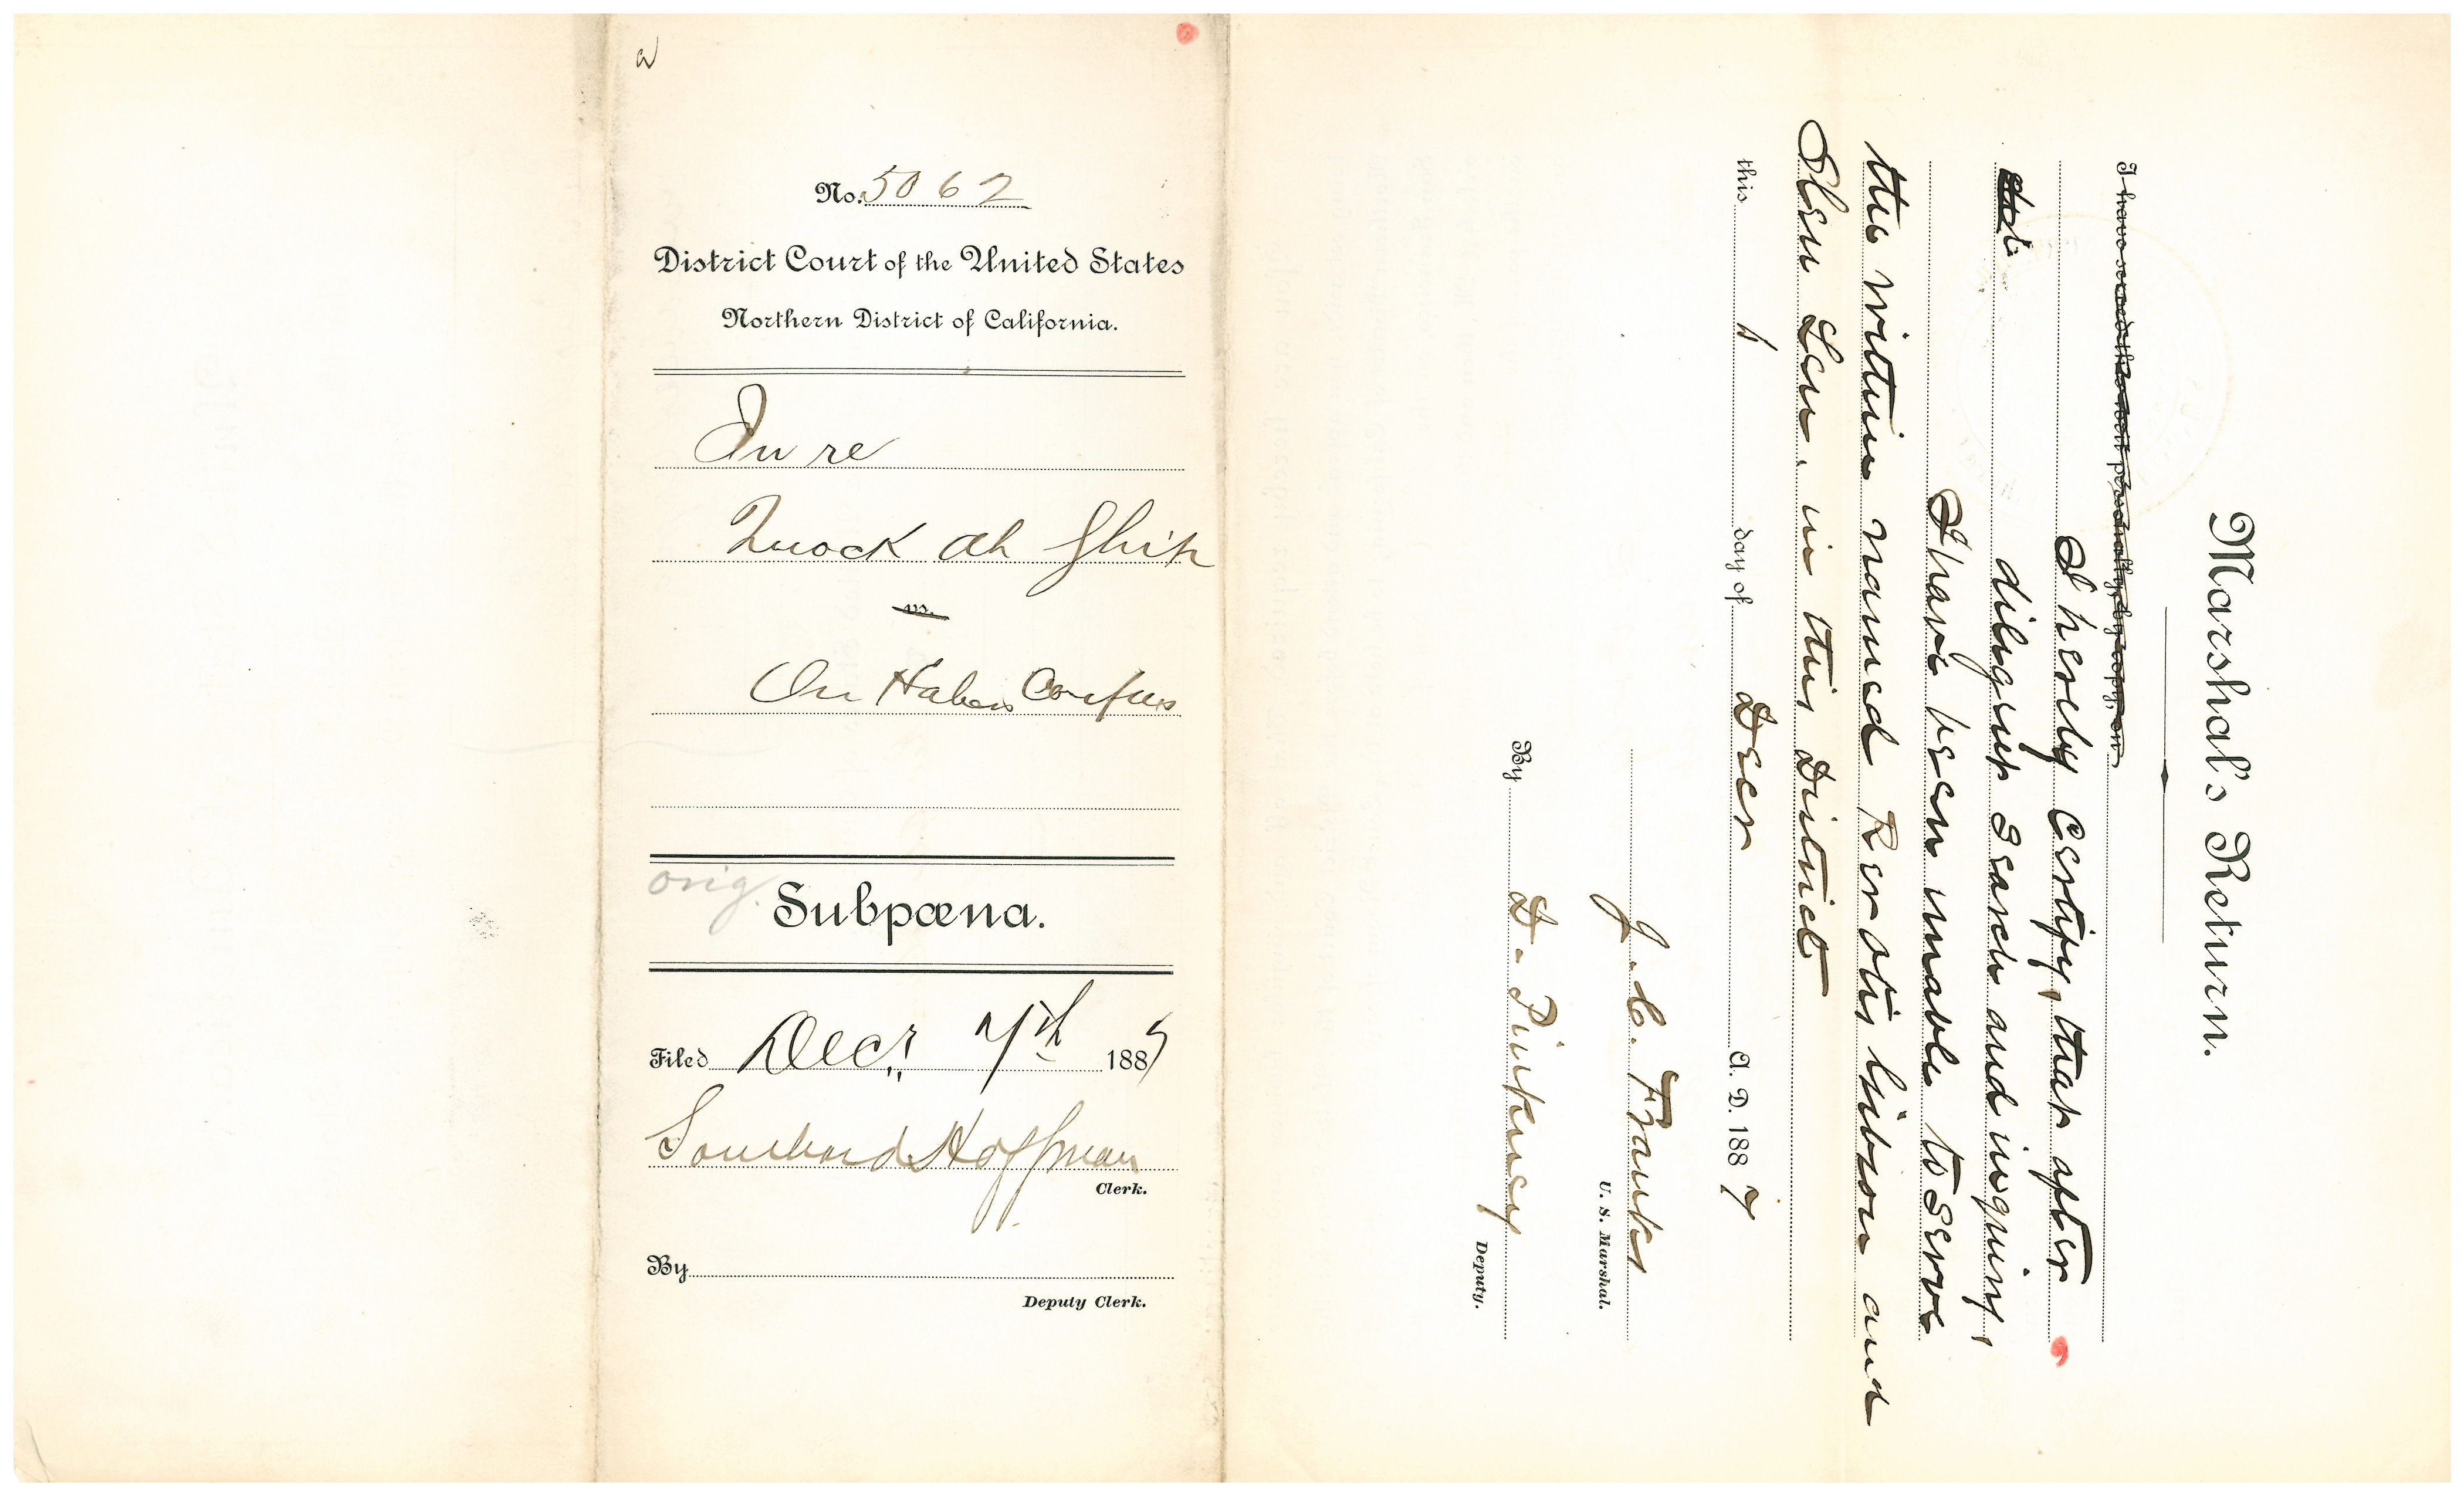 No. 5062
District Court of the United States
Northern District of California.
In re
Quock Ah Ship
vs.
On Habeas Corpus
orig.
Subpœna.
Filed Decr 7th 1887
Southard Hoffman
Clerk.
By
Deputy Clerk.
Marshal's Return.
I have served the within writ personally, by copy, on
I hereby Certify, that after
diligent Search and inquiry,
I have been unable to Serve
the within named Rev Otis Gibson and
Shen Len, in this District
this 6 day of Decr A. D. 1887
J. C. Franks
U. S. Marshal.
By D. Pinkney
Deputy.